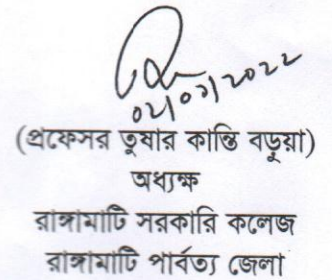 ০২/০১/২০২২
(প্রফেসর তুষার কান্তি বড়ুয়া)
অধ্যক্ষ
রাঙ্গামাটি সরকারি কলেজ
রাঙ্গামাটি পার্বত্য জেলা